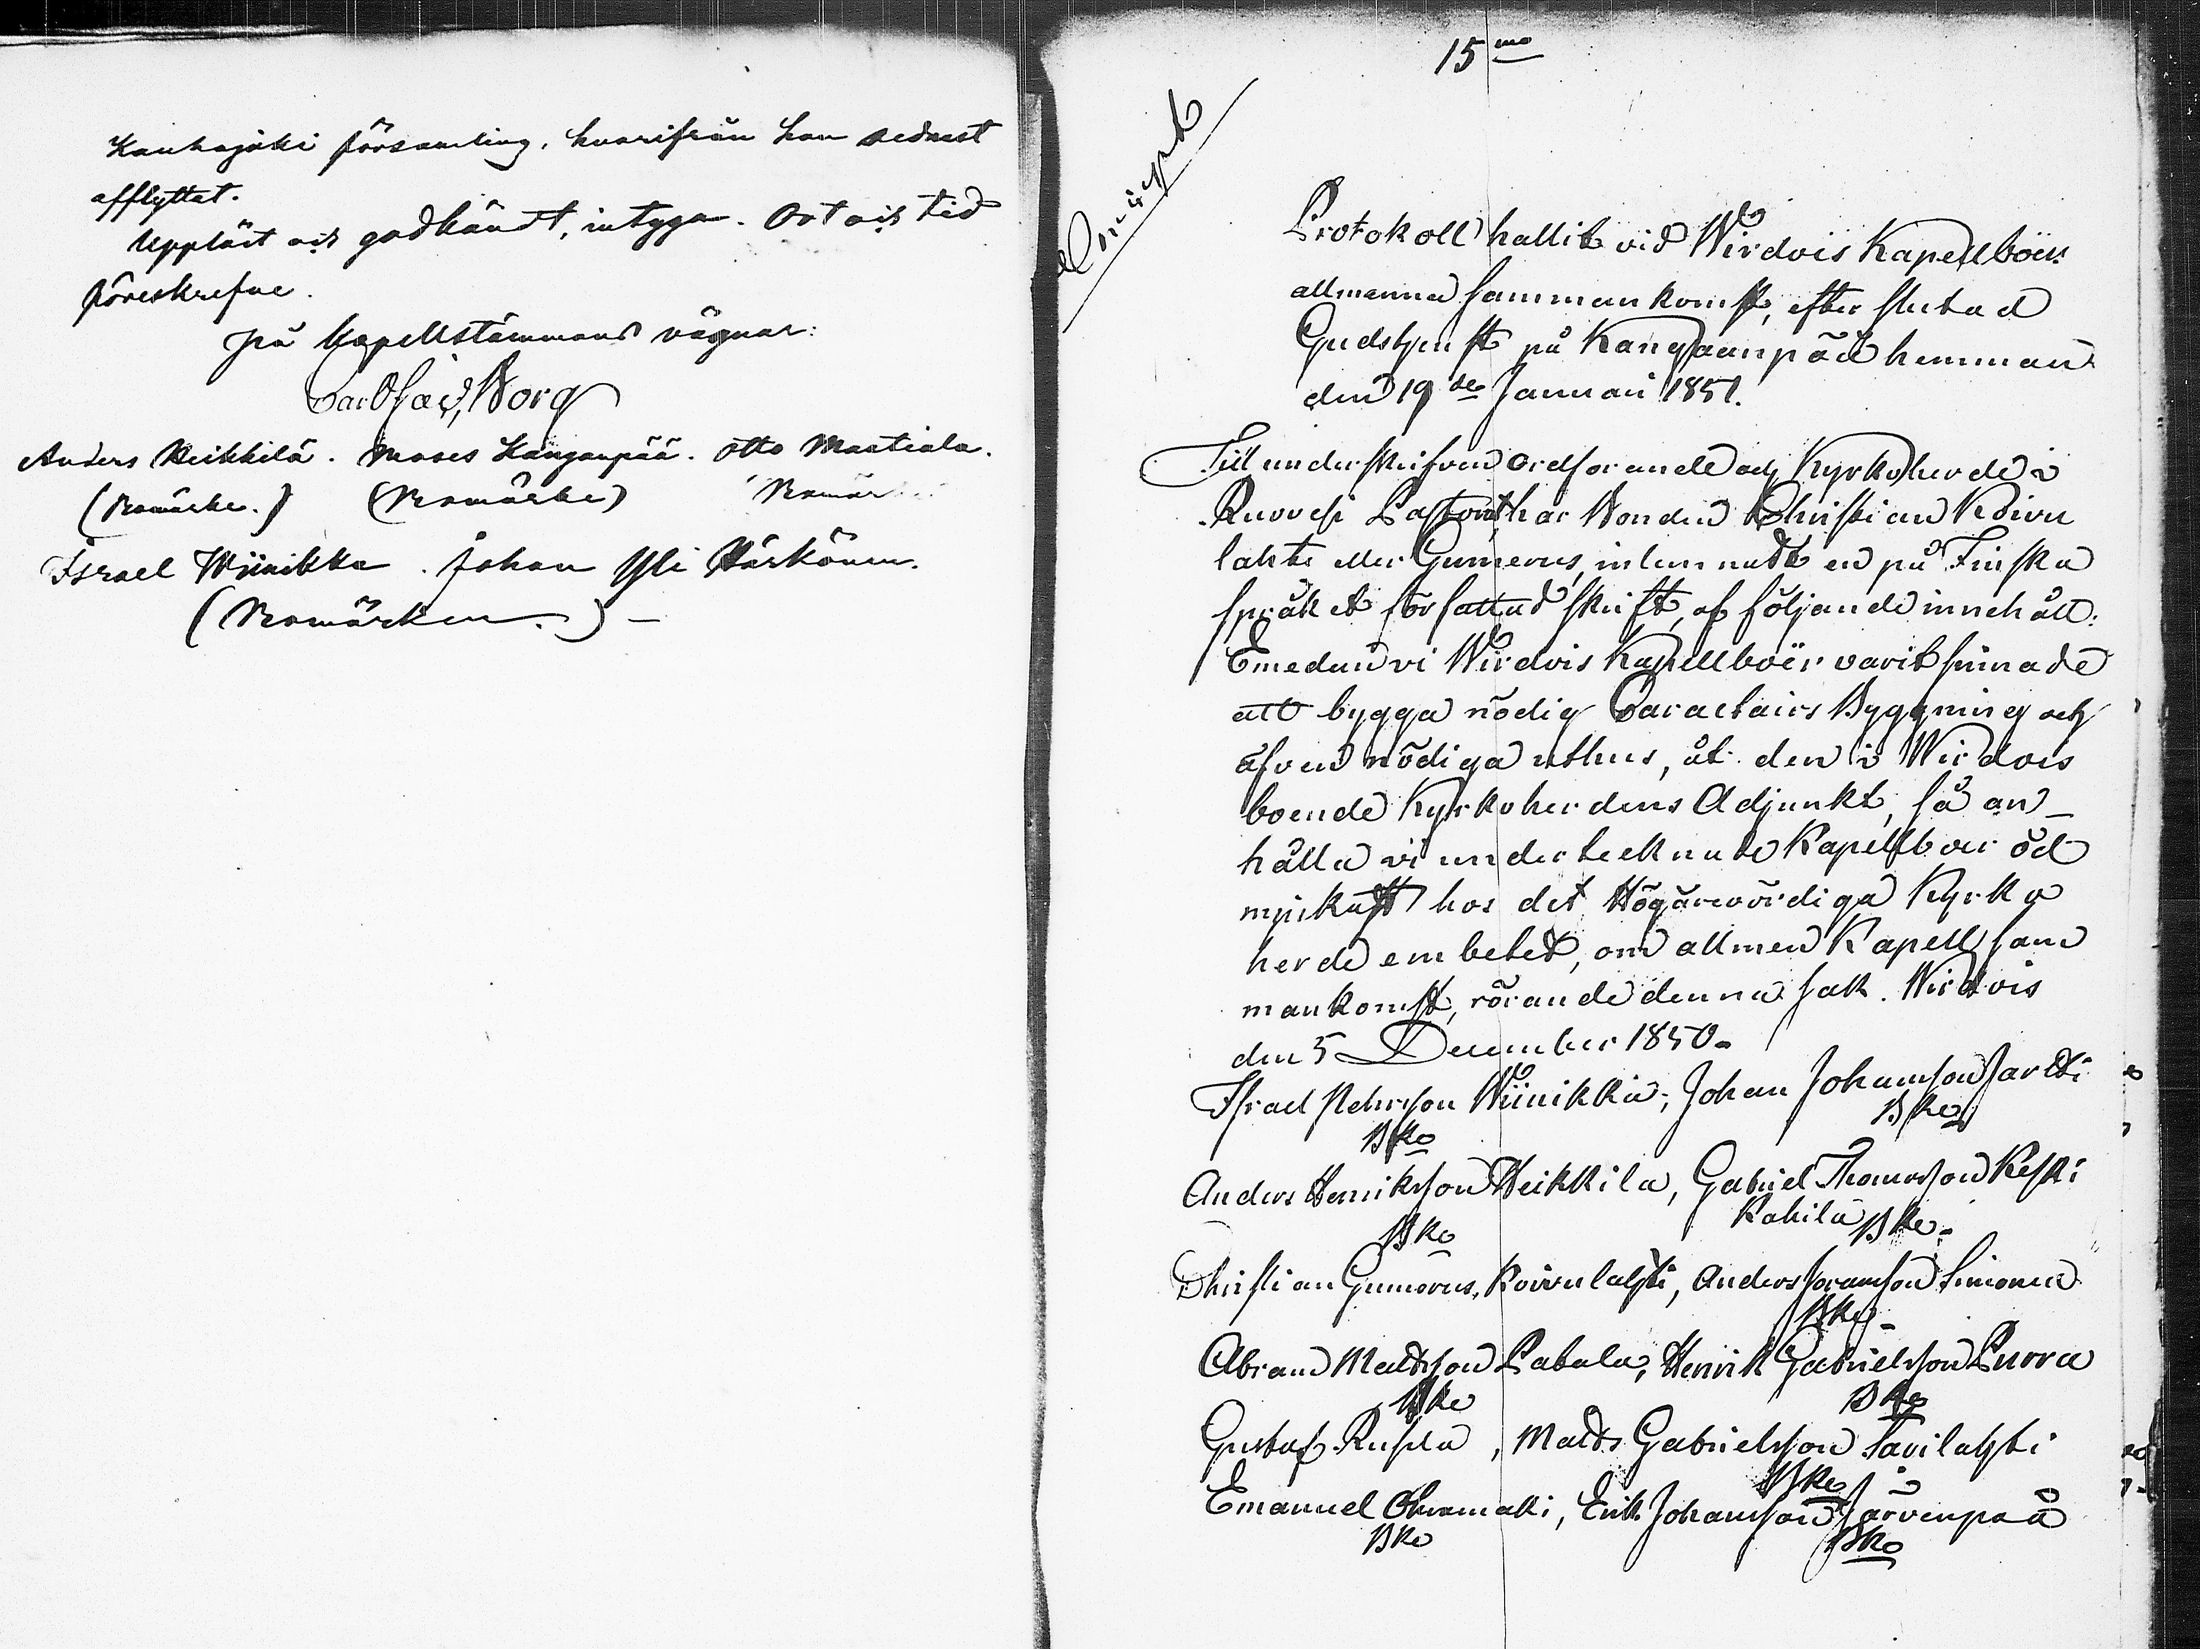 Kauhajoki församling, hvarifrån han sednast
afflyttat.
Uppläst och godkändt, intygar. Ort och tid
föreskrefne.
På Kapellstämmans vägnar:
Borg
Anders Heikkilä. Moses Kangaspää. Otto Mastiala.
(Bomärke.) (Bomärke) Bomär
Israel Wiinikka. Johan Yli Härkönen.
(Bomärken.) –
15 mo
Protokoll hållit vid Wirdois Kapellboers
allmänna sammankomst, efter slutad
Gudstjenst på Kangaanpää hemman
den 19de Januari 1851.
Till underskrifven ordförande och Kyrkoherde i
Ruovesi Pastorat, har Bonden Christian Koivu
lahti eller Gumerus, inlemnadt en på Finska
språket författad skrift, af följande innehåll:
Emedan vi Wirdois Kapellboer varit sinnade
att bygga nödig Caractairs Byggning och
äfven nödiga uthus, åt den i Wirdois
boende Kyrkoherdens Adjunkt, så an-
hålla vi undertecknade Kapellboer öd
mjukast hos det Högärevördiga Kyrko
herde embetet, om allmen Kapell sam
mankomst, rörande denna sak. Wirdois
den 5 December 1850.
Israel Wiinikka, Johan Johansson Jartti
Bke Bke
Anders Henriksson Heikkilä, Gabriel Thomasson Keski
Bke Kahila Bke.
Christian Gumerus, Koivulahti, Anders Simonen
Bke
Abram Mattsson Latala, Henrik Gabrielsson Purra
Bke Bke
Gustaf, Matts Gabrielsson Savilahti
Bke
Emanuel, Erik Johansson Järvenpää
Bke Bke